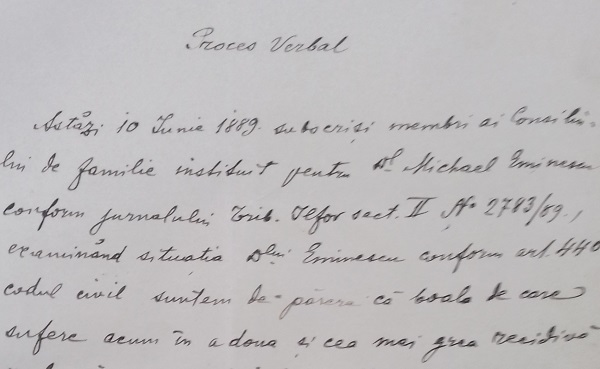 Proces Verbal
Astăzi 10 Iunie 1889. subscriși membri ai Consiliu-
lui de familie instituit pentru Dl Michael Eminescu
conform jurnalului Trib. Ilfov sect. II No 2783/89.,
examinând situația Dlui Eminescu conform art. 440
codul civil suntem de părere că boala de care
sufere acum în a doua și cea mai grea recidivă